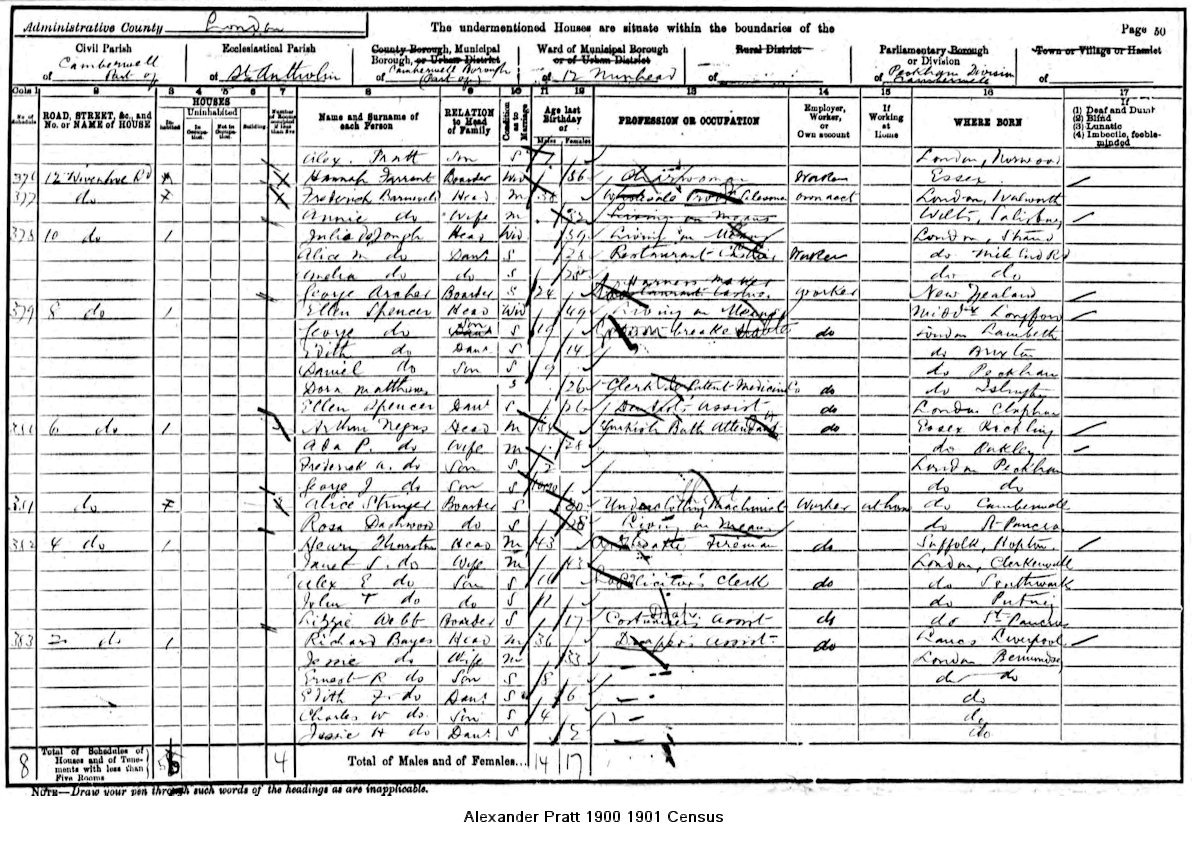 Administrative County London The undermentioned Houses are situate within the boundaries of the Page 50
Civil Parish Ecclesiastical Parish County Borough, Municipal Borough, or Urban District Ward of Municipal Borough or of Urban District Rural District Parliamentary Borough or Division Town or Village or Hamlet
of Camberwell Part of of St Antholin Camberwell Borough (Part of) of 12 Nunhead of of Peckham Division Camberwell of
Cols 1 2 3 4 5 6 7 8 9 10 11 12 13 14 15 16 17
No. of Schedule ROAD, STREET, &c., and No. or NAME of HOUSE HOUSES Inhabited Uninhabited In Occupation. Not in Occupation. Building Number of Rooms occupied if less than five Name and Surname of each Person RELATION to Head of Family Condition as to Marriage Age last Birthday of Males Females PROFESSION OR OCCUPATION Employer, Worker, or Own account If Working at Home WHERE BORN If (1) Deaf and Dumb (2) Blind (3) Lunatic (4) Imbecile, feeble-minded
Alex. Pratt Son S London, Norwood
376 12 Rd Hannah Farrant Boarder Wid 56 Charwoman Worker Essex
377 do Frederick Head M 30 Wholesale own acct London, Walworth
Annie do Wife M 32 Living on Means Wilts, Salisbury
378 10 do 1 Julia Head Wid 59 Living on Means London, Strand
Alice M do Daur S 28 Restaurant Worker do Mile End Rd
Amelia do do S do do
George Archer Boarder S 24 Harness Maker Worker New Zealand
379 8 do 1 Ellen Spencer Head Wid 49 Living on Means Middx Longford
George do Son S 19 do London Lambeth
Edith do Daur S 14 do Brixton
Daniel do Son S 9 do Peckham
Dora Matthews S 26 Clerk to Patent Medicine Co do do Islington
Ellen Spencer Daur S Dentist's Assist do London Clapham
6 do 1 Arthur Negus Head M Turkish Bath Attendant do Essex
Ada P. do Wife M 28 do Oakley
Frederick A. do Son S 2 London Peckham
George J do Son S do do
381 do Alice Stringer Boarder S 30 Underclothing Machinist Worker at home do Camberwell
Rosa Dashwood do S Living on Means do St Pancras
382 4 do 1 Henry Thurston Head M 43 Theatre Fireman do Suffolk, Hopton
Janet S. do Wife M 43 London, Clerkenwell
Alex E do Son S Solicitor's Clerk do do Southwark
John F do do S do Putney
Lizzie Webb Boarder S 17 Costumier's Assist do do St Pancras
383 2 do 1 Richard Bayes Head M 36 Draper's Assist do Lancs Liverpool
Jessie do Wife M 33 London Bermondsey
Ernest R do Son S 8 do do
Edith F. do Daur S 6 do
Charles W do Son S 4 do
Jessie H do Daur S do
8 Total of Schedules of Houses and of Tenements with less than Five Rooms 4 Total of Males and of Females... 14 17
Note—Draw your pen through such words of the headings as are inapplicable.
Alexander Pratt 1900 1901 Census